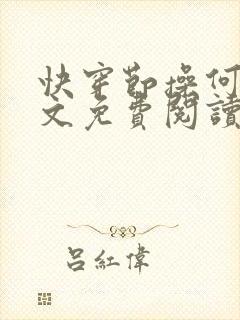 快穿節操何
文免費閱讀
呂紅偉